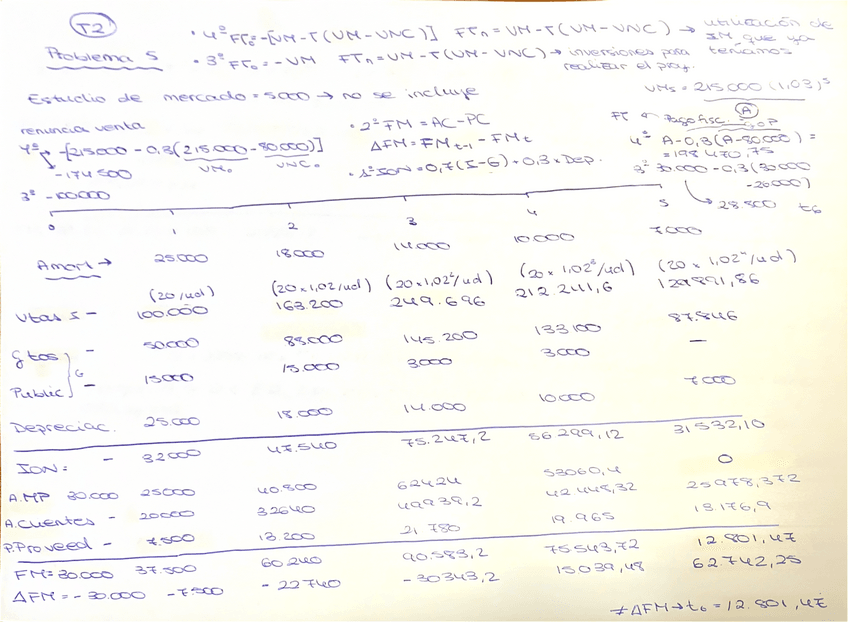 T2
Problema 5
· 4º FT₀ = -[VM - T(VM - VNC)] FTn = VM - T(VM - VNC) → utilización de IM que ya teníamos
· 3º FT₀ = - VM FTn = VM - T(VM - VNC) → inversiones para realizar el proy.
Estudio de mercado = 5000 → no se incluye
VM₅ = 215000 (1,03)⁵
A
renuncia venta
· 2º FM = AC - PC
ΔFM = FMt-1 - FMt
· 1º ION = 0,7(I - G) + 0,3 × Dep.
4º → -[215000 - 0,3(215.000 - 80.000)]
VM₀ VNC₀
-174500
3º -100000
4º A - 0,3(A - 80.000) =
= 198 470,75
3º 30.000 - 0,3(30000 - 20000)
→ 28500 t6
0 1 2 3 4 5
Amort → 25000 18000 14000 10.000 7000
(20/ud) (20 × 1,02/ud) (20 × 1,02²/ud) (20 × 1,02³/ud) (20 × 1,02⁴/ud)
Vtas I - 100.000 163.200 249.696 212.241,6 129891,86
Gtos - 50000 88000 145.200 133100 87.846
G
Public - 15000 15.000 3000 3000 —
Depreciac. 25.000 18.000 14.000 10000 7000
ION: - 32000 47.540 75.247,2 56 299,12 31532,10
A.MP 30.000 25000 40.800 62424 53060,4 0
A.Cuentes - 20000 32640 49939,2 42448,32 25978,372
P.Proveed - 7.500 13.200 21.780 19.965 13.176,9
FM = 30.000 37.500 60.240 90.583,2 75543,72 12.801,47
ΔFM = - 30.000 -7500 - 22740 - 30343,2 15039,48 62742,25
≠ ΔFM → t6 = 12.801,47